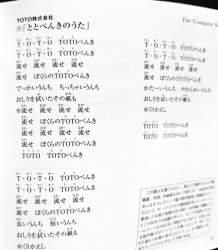 TOTO株式会社
「ととべんきのうた」
T・O・T・O TOTOべんき
T・O・T・O TOTOべんき
流せ 流せ 流せ 流せ
流せ ぼくらのTOTOべんき
でっかいうんち ちっちゃいうんち
おしりを拭いたその紙も
流せ 流せ 流せ 流せ
流せ ぼくらのTOTOべんき
T・O・T・O TOTOべんき
T・O・T・O TOTOべんき
流せ 流せ 流せ 流せ
流せ ぼくらのTOTOべんき
TOTO TOTOべんき
T・O・T・O TOTOべんき
T・O・T・O TOTOべんき
流せ 流せ 流せ 流せ
流せ ぼくらのTOTOべんき
長いうんち 短いうんち
おしりを拭いたその紙も
※くりかえし
The Company
T・O・T・O TOTOべんき
T・O・T・O TOTOべんき
流せ 流せ 流せ 流せ
流せ ぼくらのTOTOべんき
かた〜いうんち やわらかいうんち
おしりを拭いたその紙も
※くりかえし
TOTO TOTOべんき
TOTO TOTOべんき